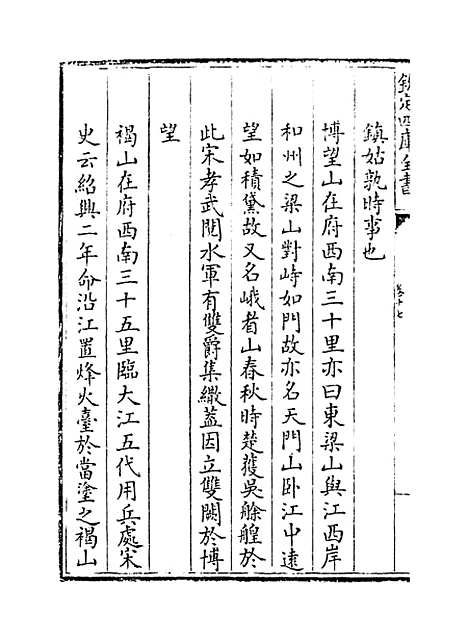 欽定四庫全書
卷十七
鎮姑孰時事也
博望山在府西南三十里亦曰東梁山與江西岸
和州之梁山對峙如門故亦名天門山卧江中遠
望如積黛故又名峨眉山春秋時楚獲吳艅艎於
此宋孝武閱水軍有雙爵集繖蓋因立雙闕於博
望
褐山在府西南三十五里臨大江五代用兵處宋
史云紹興二年命沿江置烽火臺於當塗之褐山